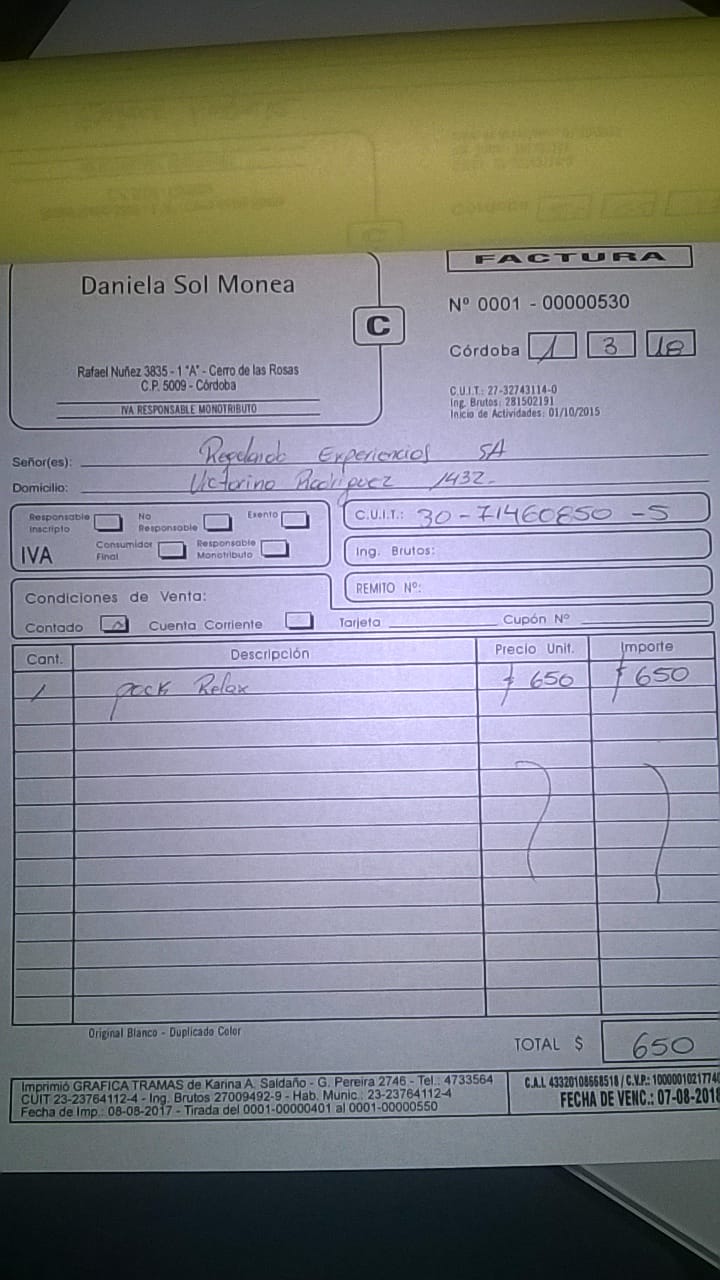 Daniela Sol Monea
Rafael Nuñez 3835 - 1 "A" - Cerro de las Rosas
C.P. 5009 - Córdoba
IVA RESPONSABLE MONOTRIBUTO
C
FACTURA
Nº 0001 - 00000530
Córdoba 1 3 18
C.U.I.T.: 27-32743114-0
Ing. Brutos: 281502191
Inicio de Actividades: 01/10/2015
Señor(es): Regalando Experiencias SA
Domicilio: Victorino Rodriguez 1432.-
IVA
Responsable Inscripto
No Responsable
Exento
Consumidor Final
Responsable Monotributo
C.U.I.T.: 30-71460850-5
Ing. Brutos:
REMITO Nº:
Condiciones de Venta:
Contado Cuenta Corriente Tarjeta Cupón Nº
Cant. Descripción Precio Unit. Importe
1 pack Relax $ 650 $ 650
Original Blanco - Duplicado Color
TOTAL $ 650
Imprimió GRAFICA TRAMAS de Karina A. Saldaño - G. Pereira 2746 - Tel.: 4733564
CUIT 23-23764112-4 - Ing. Brutos 27009492-9 - Hab. Munic.: 23-23764112-4
Fecha de Imp.: 08-08-2017 - Tirada del 0001-00000401 al 0001-00000550
C.A.I. 43320108668518 / C.V.P.: 1000001021774
FECHA DE VENC.: 07-08-2018